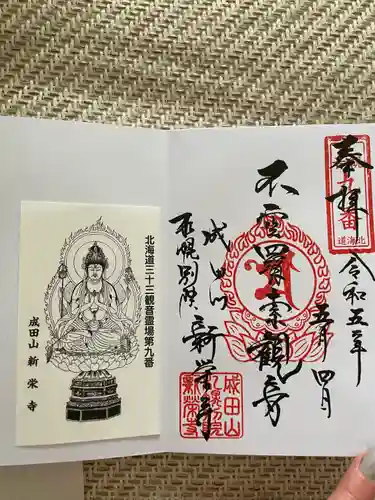 奉拝
九番
北海道
令和五年
五月四日
不空羂索観音
成田山
札幌別院
新栄寺
成田山
新栄寺
北海道三十三観音霊場第九番
成田山 新栄寺